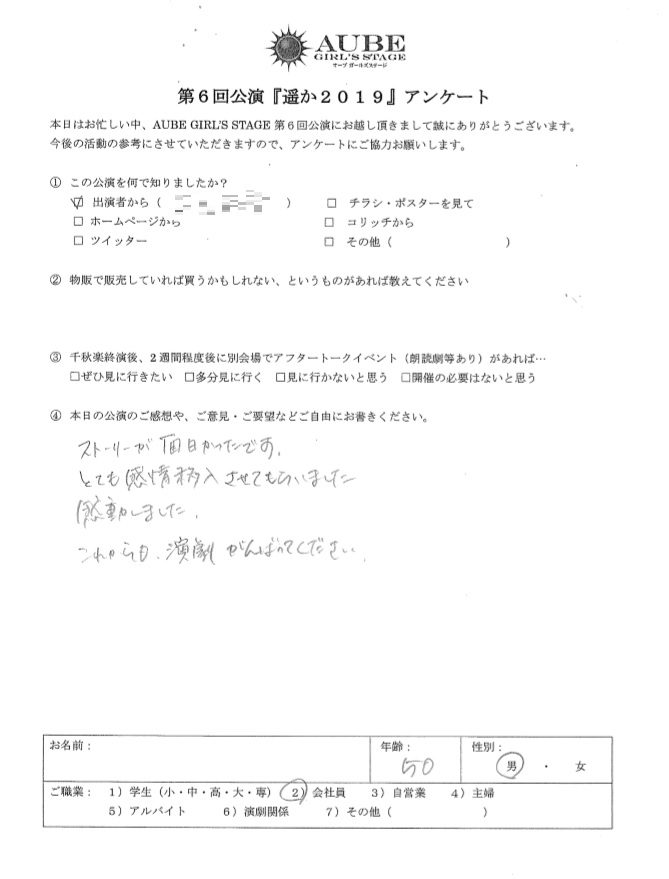 AUBE
GIRL'S STAGE
オーブ ガールズステージ
第6回公演『遥か2019』アンケート
本日はお忙しい中、AUBE GIRL'S STAGE 第6回公演にお越し頂きまして誠にありがとうございます。
今後の活動の参考にさせていただきますので、アンケートにご協力お願いします。
① この公演を何で知りましたか?
☑ 出演者から( ) □ チラシ・ポスターを見て
□ ホームページから □ コリッチから
□ ツイッター □ その他( )
② 物販で販売していれば買うかもしれない、というものがあれば教えてください
③ 千秋楽終演後、2週間程度後に別会場でアフタートークイベント(朗読劇等あり)があれば…
□ぜひ見に行きたい □多分見に行く □見に行かないと思う □開催の必要はないと思う
④ 本日の公演のご感想や、ご意見・ご要望などご自由にお書きください。
ストーリーが面白かったです。
とても感情移入させてもらいました
感動しました。
これからも、演劇がんばってください。
お名前: 年齢: 50 性別: 男 ・ 女
ご職業: 1)学生(小・中・高・大・専) 2)会社員 3)自営業 4)主婦
5)アルバイト 6)演劇関係 7)その他( )